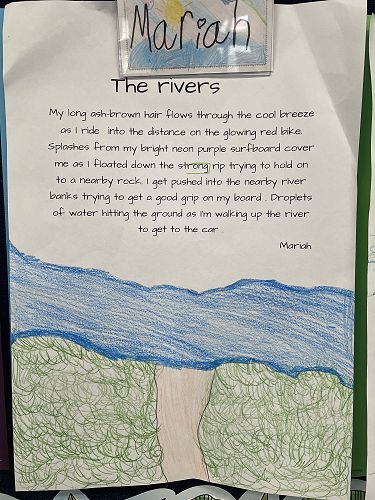 Mariah
The rivers
My long ash-brown hair flows through the cool breeze
as I ride into the distance on the glowing red bike.
Splashes from my bright neon purple surfboard cover
me as I floated down the strong rip trying to hold on
to a nearby rock. I get pushed into the nearby river
banks trying to get a good grip on my board . Droplets
of water hitting the ground as I'm walking up the river
to get to the car .
Mariah